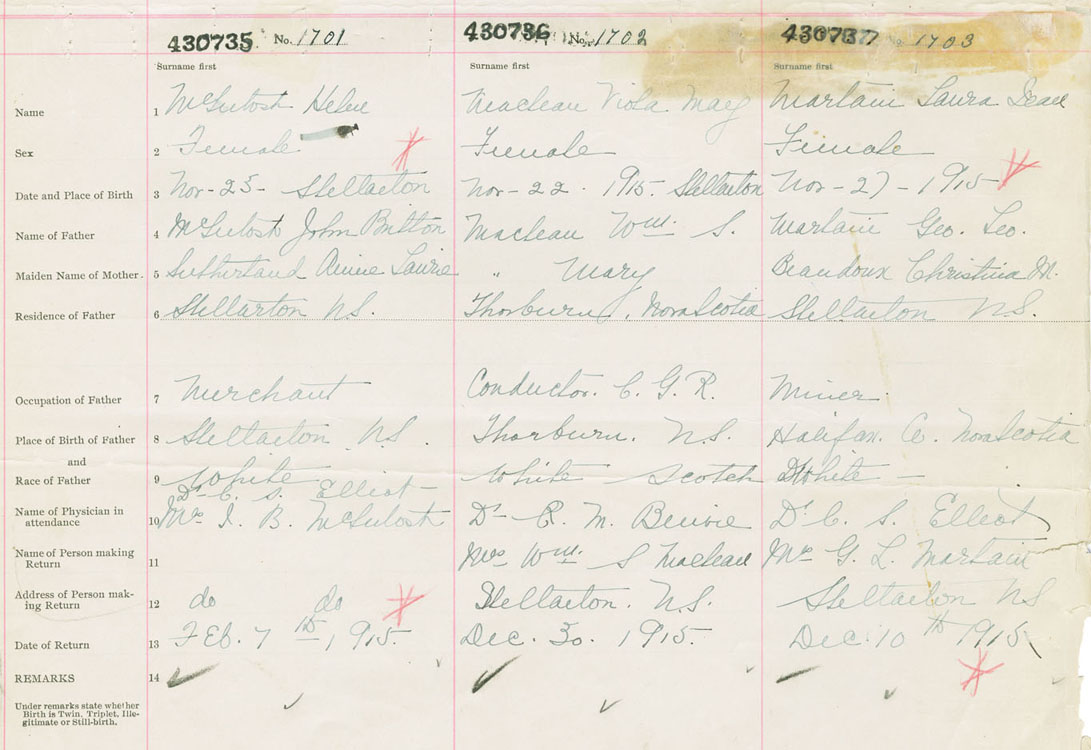 430735 No. 1701 430736 No. 1702 430737 No. 1703
Surname first Surname first Surname first
Name 1 McIntosh Helen Maclean Viola May Martain Laura Dean
Sex 2 Female Female Female
Date and Place of Birth 3 Nov-23- Stellarton Nov-22. 1915. Stellarton Nov-27-1915
Name of Father 4 McIntosh John Britton Maclean Wm. S. Martain Geo. Leo.
Maiden Name of Mother 5 Sutherland Annie Laurie " Mary Beaudoux Christina M.
Residence of Father 6 Stellarton N.S. Thorburn, Nova Scotia Stellarton N.S.
Occupation of Father 7 Merchant Conductor. C. G. R. Miner.
Place of Birth of Father 8 Stellarton N.S. Thorburn. N.S. Halifax. Nova Scotia
and
Race of Father 9 White White Scotch White
Dr C. S. Elliot
Name of Physician in attendance 10 Mrs J. B. McIntosh Dr M. Dr C. S. Elliot
Name of Person making Return 11 Mrs Wm. S Maclean Mrs G. L. Martain
Address of Person making Return 12 do do Stellarton. N.S. Stellarton NS
Date of Return 13 Feb. 7th, 1915. Dec. 30. 1915. Dec. 10th 1915
REMARKS 14
Under remarks state whether
Birth is Twin, Triplet, Ille-
gitimate or Still-birth.